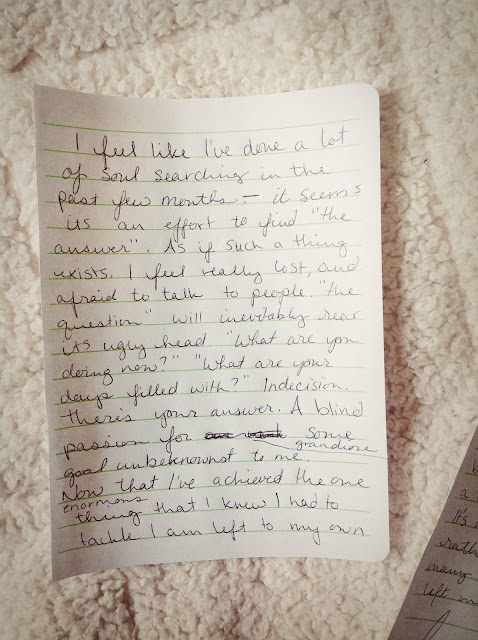 I feel like I've done a lot
of soul searching in the
past few months – it seems
its an effort to find "the
answer". As if such a thing
exists. I feel really lost, and
afraid to talk to people. "the
question" will inevitably rear
its ugly head. "What are you
doing now?" "What are your
days filled with?" Indecision.
there's your answer. A blind
passion for some
grandiose
goal unbeknownst to me.
Now that I've achieved the one
enormous
thing that I knew I had to
tackle I am left to my own
a
It's
rath
many
left m